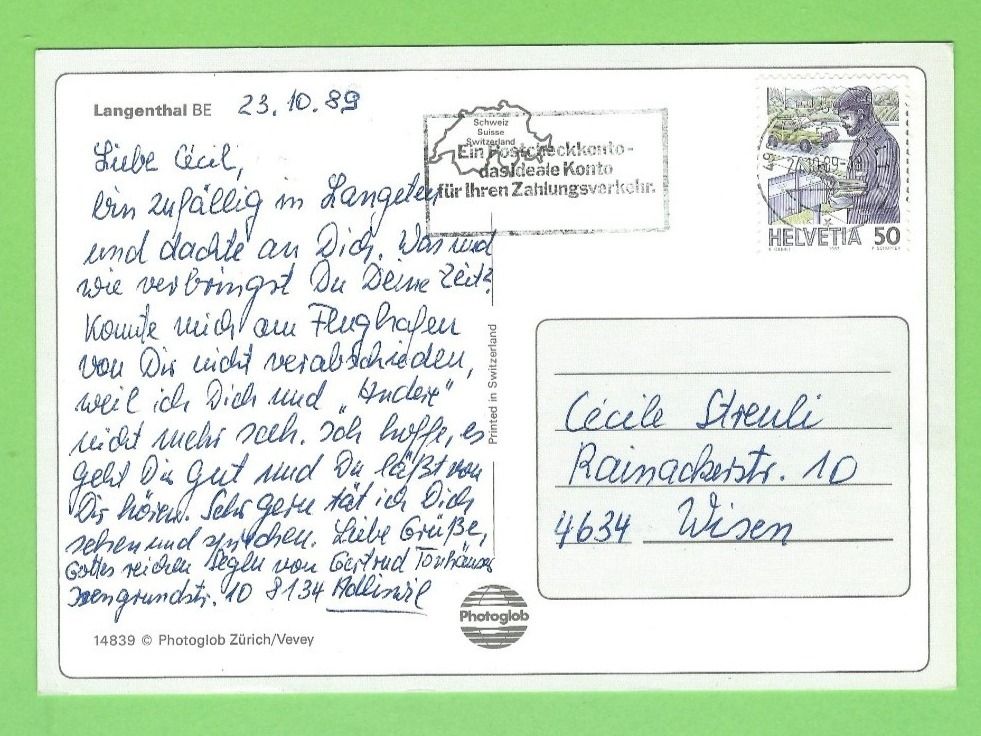 Langenthal BE 23.10.89
Liebe Cécil,
bin zufällig in
und dachte an Dich. Was und
wie verbringst Du Deine Zeit?
Konnte mich am Flughafen
von Dir nicht verabschieden,
weil ich Dich und „Andere“
nicht mehr sah. Ich hoffe, es
geht Dir gut und Du läßt von
Dir hören. Sehr gern tät ich Dich
sehen und sprechen. Liebe Grüße,
Gottes reichen Segen von Gertrud
10 8134 Adliswil
14839 © Photoglob Zürich/Vevey
Printed in Switzerland
Photoglob
Schweiz
Suisse
Switzerland
Ein Postcheckkonto-
das ideale Konto
für Ihren Zahlungsverkehr.
HELVETIA 50
Cécile Streuli
Rainackerstr. 10
4634 Wisen